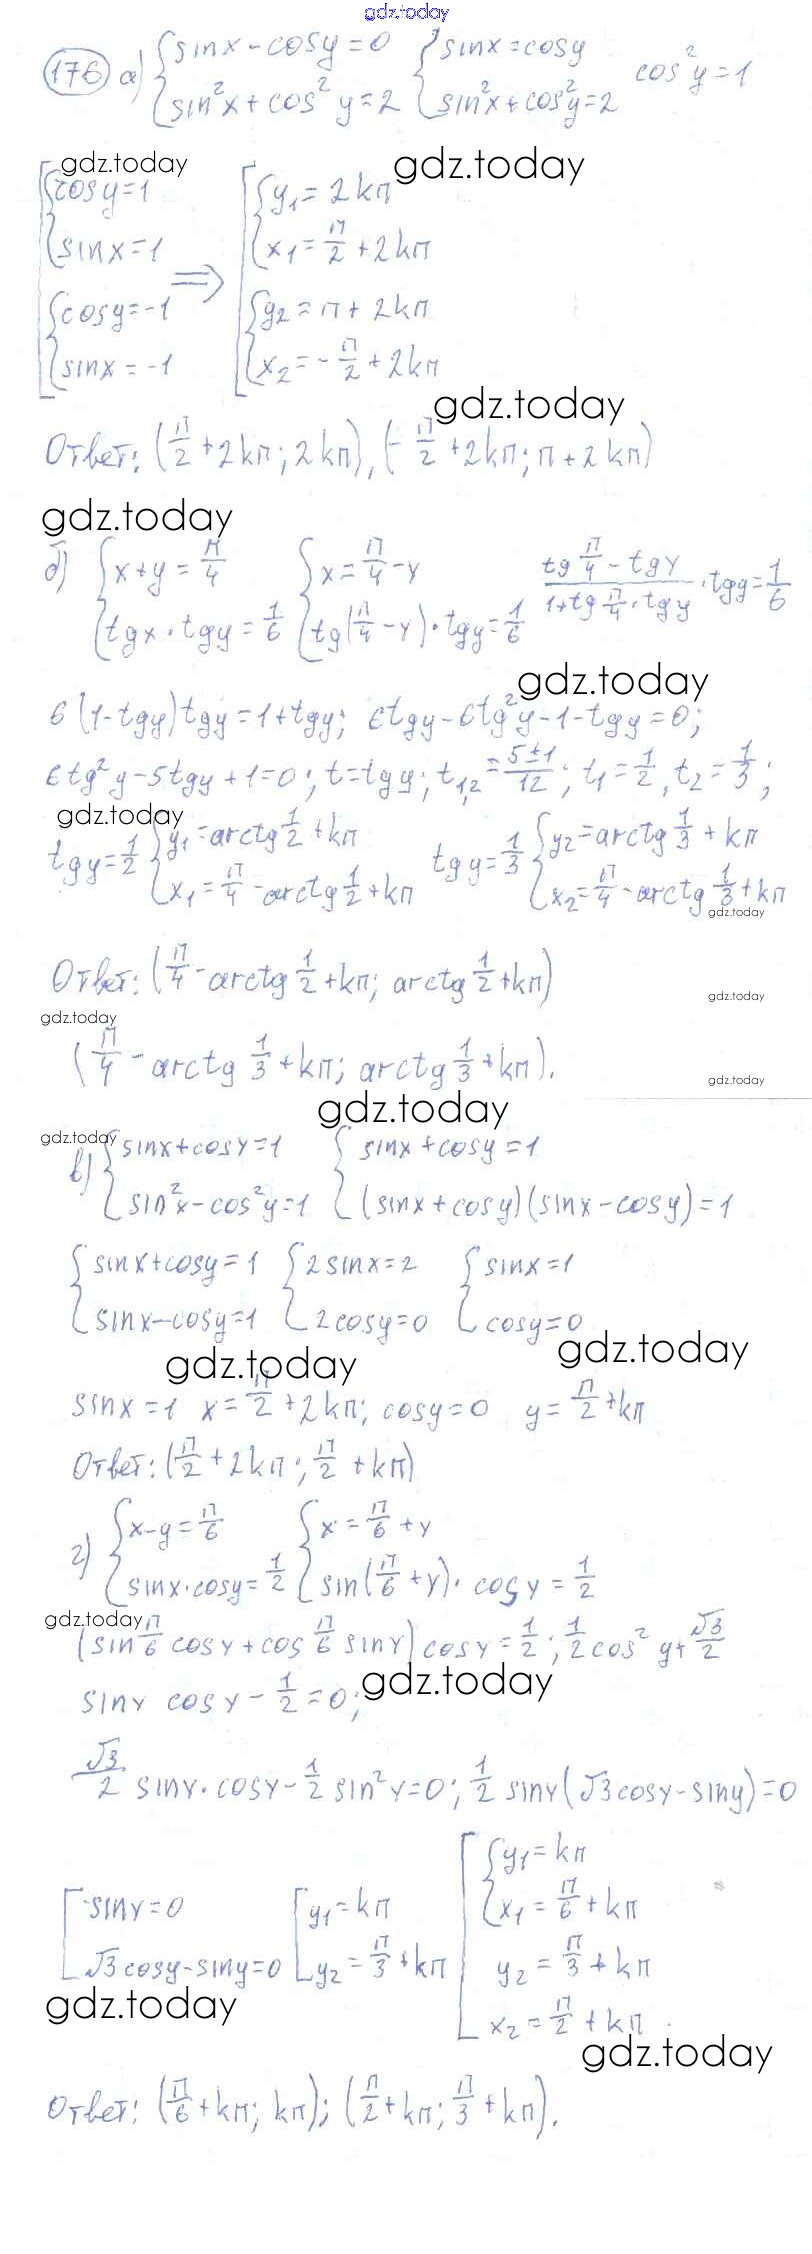 gdz.today
176 а) {sinx - cosy = 0 {sinx = cosy cos²y = 1
{sin²x + cos²y = 2 {sin²x + cos²y = 2
gdz.today gdz.today
[{cosy = 1 [{y₁ = 2kπ
{sinx = 1 {x₁ = π/2 + 2kπ
=>
{cosy = -1 {y₂ = π + 2kπ
{sinx = -1 {x₂ = -π/2 + 2kπ
gdz.today
Ответ: (π/2 + 2kπ; 2kπ), (-π/2 + 2kπ; π + 2kπ)
gdz.today
б) {x + y = π/4 {x = π/4 - y (tg π/4 - tgy)/(1 + tg π/4 · tgy) · tgy = 1/6
{tgx · tgy = 1/6 {tg(π/4 - y) · tgy = 1/6
gdz.today
6(1 - tgy)tgy = 1 + tgy; 6tgy - 6tg²y - 1 - tgy = 0;
6tg²y - 5tgy + 1 = 0; t = tgy; t₁,₂ = (5±1)/12; t₁ = 1/2, t₂ = 1/3;
gdz.today
tgy = 1/2 {y₁ = arctg 1/2 + kπ tgy = 1/3 {y₂ = arctg 1/3 + kπ
{x₁ = π/4 - arctg 1/2 + kπ {x₂ = π/4 - arctg 1/3 + kπ
gdz.today
Ответ: (π/4 - arctg 1/2 + kπ; arctg 1/2 + kπ)
gdz.today
gdz.today
(π/4 - arctg 1/3 + kπ; arctg 1/3 + kπ).
gdz.today
gdz.today
gdz.today
в) {sinx + cosy = 1 {sinx + cosy = 1
{sin²x - cos²y = 1 {(sinx + cosy)(sinx - cosy) = 1
{sinx + cosy = 1 {2sinx = 2 {sinx = 1
{sinx - cosy = 1 {2cosy = 0 {cosy = 0
gdz.today gdz.today
sinx = 1 x = π/2 + 2kπ; cosy = 0 y = π/2 + kπ
Ответ: (π/2 + 2kπ; π/2 + kπ)
г) {x - y = π/6 {x = π/6 + y
{sinx · cosy = 1/2 {sin(π/6 + y) · cosy = 1/2
gdz.today
(sin π/6 cosy + cos π/6 siny) cosy = 1/2; 1/2 cos²y + √3/2
siny cosy - 1/2 = 0; gdz.today
√3/2 siny · cosy - 1/2 sin²y = 0; 1/2 siny(√3cosy - siny) = 0
[siny = 0 [y₁ = kπ [{y₁ = kπ
{x₁ = π/6 + kπ
[√3cosy - siny = 0 [y₂ = π/3 + kπ y₂ = π/3 + kπ
x₂ = π/2 + kπ
gdz.today gdz.today
Ответ: (π/6 + kπ; kπ); (π/2 + kπ; π/3 + kπ).